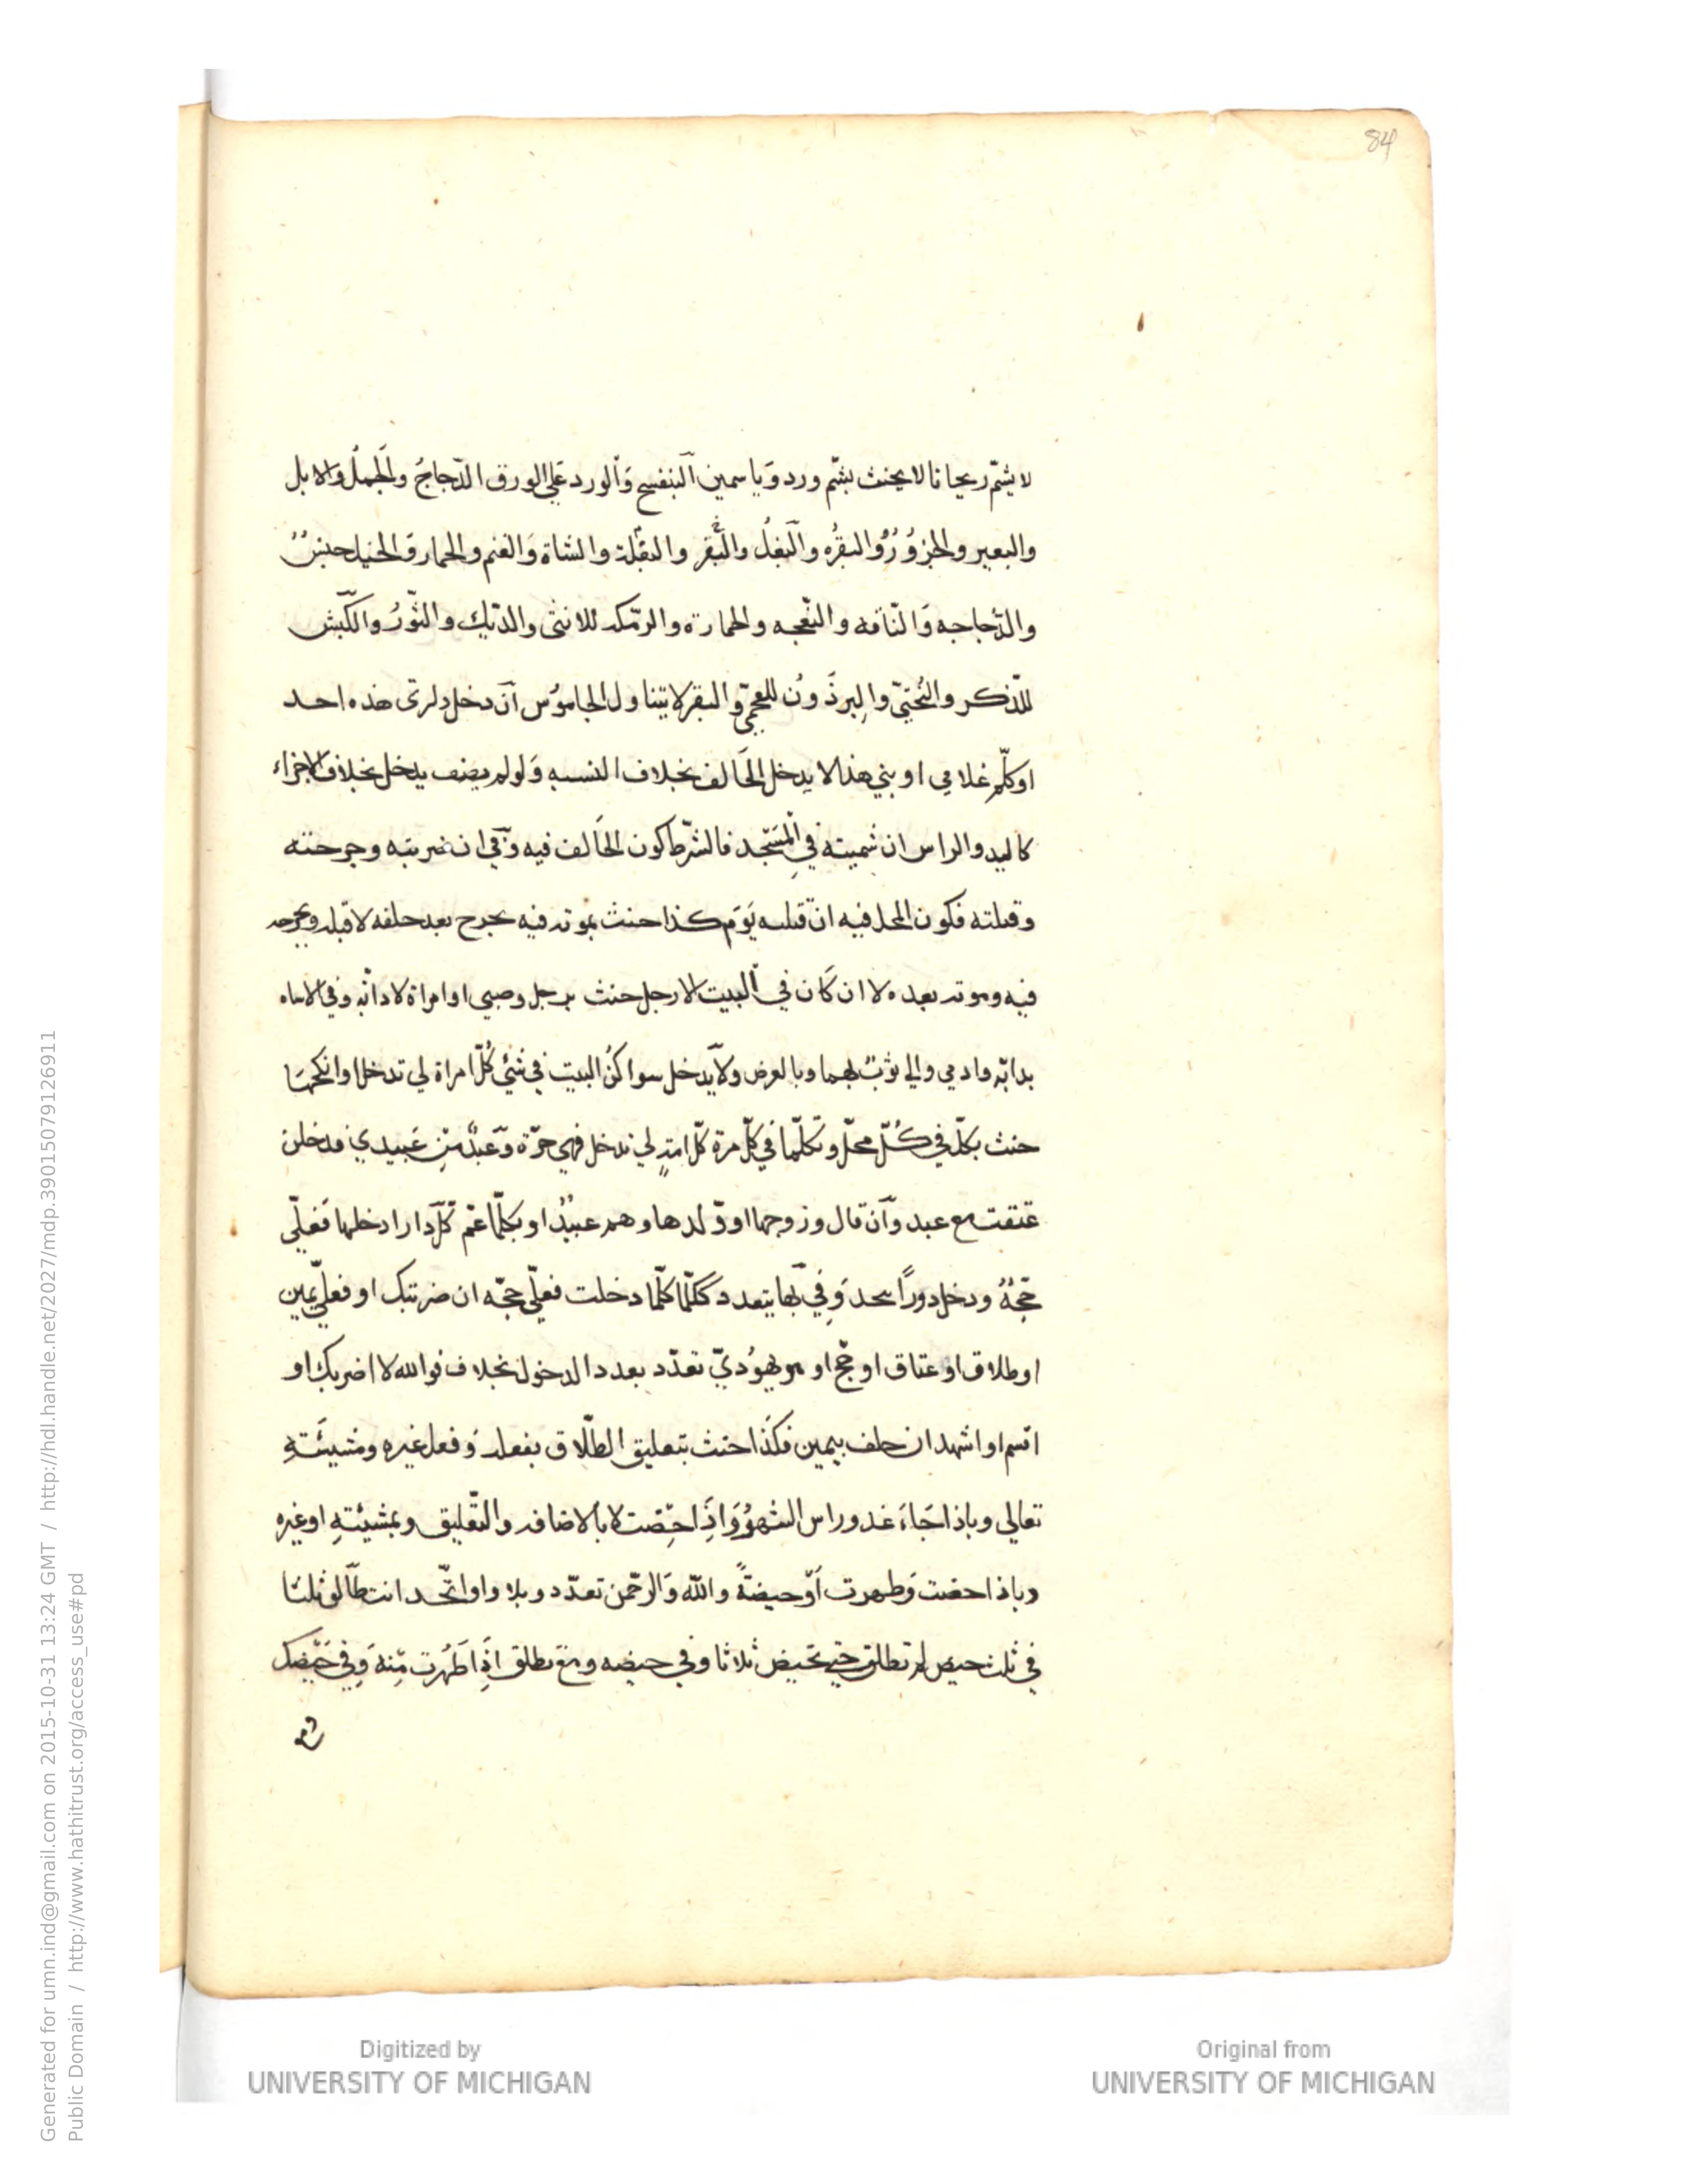 84
لا يشمّ ريحانا لا يحنث بشمّ ورد وَياسمين البنفسج وَالورد عَلي الورق الدّجاجُ والجملُ والابل
والبعير والجزوُرُ والبقرُه والبغلُ والبُقر والبقلة والشاة وَالغنم والحمار وَالخيل جنسٌ
والدّجاجه وَالنّاقه والنّعجه والحمارة والرّمكه للانثى والدّيك والثّورُ والكبش
للذكر والبُختيّ والبرذَونُ للعجميّ والبقر لا يتناول الجاموُس آن دخل دارى هذه احد
اوكلّم غلامي او بني هذا لا يدخل الحَالف بخلاف النسبه وَلو لم يضف يدخل بخلاف الاجزاء
كاليد والراس ان شميته فِي المسَجد فالشّرط كون الحَالف فيه وَفي ان ضربته وجرحته
وقتلته فكون المحل فيه انّ قتلته يَوَم كذا حنث بموته فيه بجرح بعد حلفه لا قبله وبجرحه
فيه وموته بعده لا ان كَان في البيت الا رجل حنث برجل وصبي او امراة لا دابّه وفي الاشاه
بدابّه وادمي والي ثوبٌ بهما وبالعرض ولا يدخل سواكنُ البيت في شئي كُلّ امراة لي تدخل او انكحهَا
حنث بكلّ في كُلّ محلّ وبكلّما في كلّ مرة كلّ امةٍ لي تدخل فهي حرّة وَعبدٌ مّنِ عَبيدي فدخلن
عتقت مع عبد وآن قال وزوجها او وّلدها وهم عبيدٌ او بكلّما عمّ كلّ دارا دخلها فعليّ
حَجّةٌ ودخل دوراً يتحد وَفِي بّها يتعدد ككلّما كلّما دخلت فعليّ حجّه ان ضربتك او فعليّ يمين
او طلاق او عتاق او حجّ او هو يهوُديّ تعدّد بعدد الدخول بخلاف فوالله لا اضربك او
اقسم او اشهد ان حلف بيمين فكَذا حنث بتعليق الطّلاق بفعله وَفعل غيره ومشيئَتهِ
تعالي وباذا جَاءَ غد وراس الشهرُ وَاذَِا حِضت لا بالاضافه والتّعليق وبمشيئتهِ او غيره
وباذا حضت وَطهرت اَوّ حيضةً والله وَالرحّمن تعدّد وبلا واو اتّحد انت طّالق ثلثا
في ثلث حيض لم تطلق حتي تحيض ثلاثا وفي حيضه ومَعَ تطلق اذَِا طَهُرت مّنِهَ وَفي حَيّضك
Generated for umn.ind@gmail.com on 2015-10-31 13:24 GMT / http://hdl.handle.net/2027/mdp.39015079126911
Public Domain / http://www.hathitrust.org/access_use#pd
Digitized by
UNIVERSITY OF MICHIGAN
Original from
UNIVERSITY OF MICHIGAN